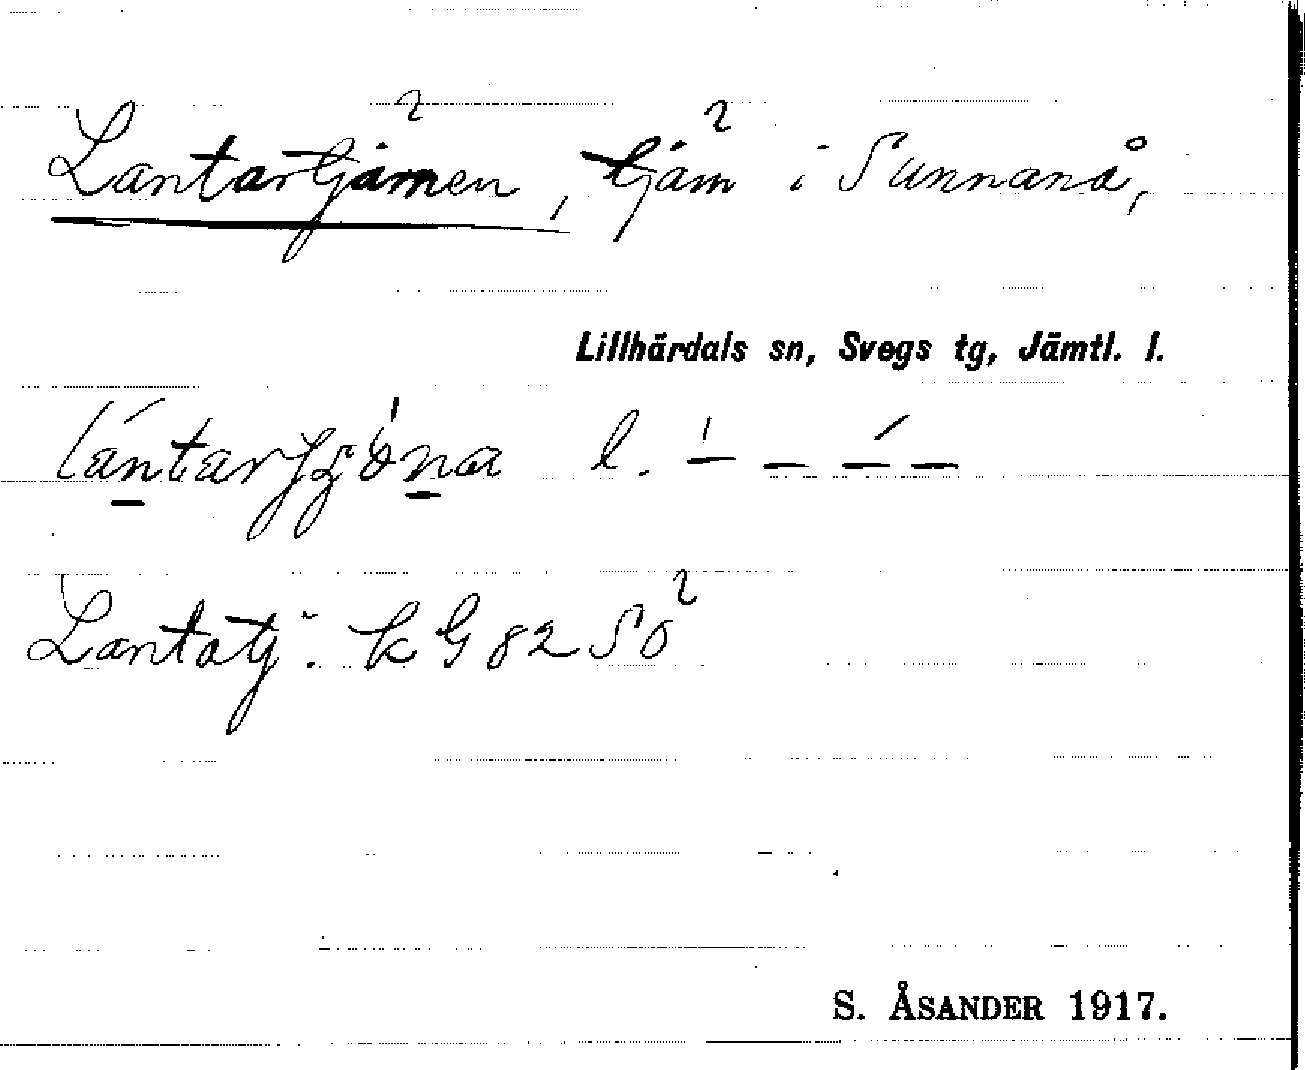 Lantartjärnen, tjärn i Sunnanå,
Lillhärdals sn, Svegs tg, Jämtl. l.
l.
Lantatj. k G 82 SO
S. ÅSANDER 1917.